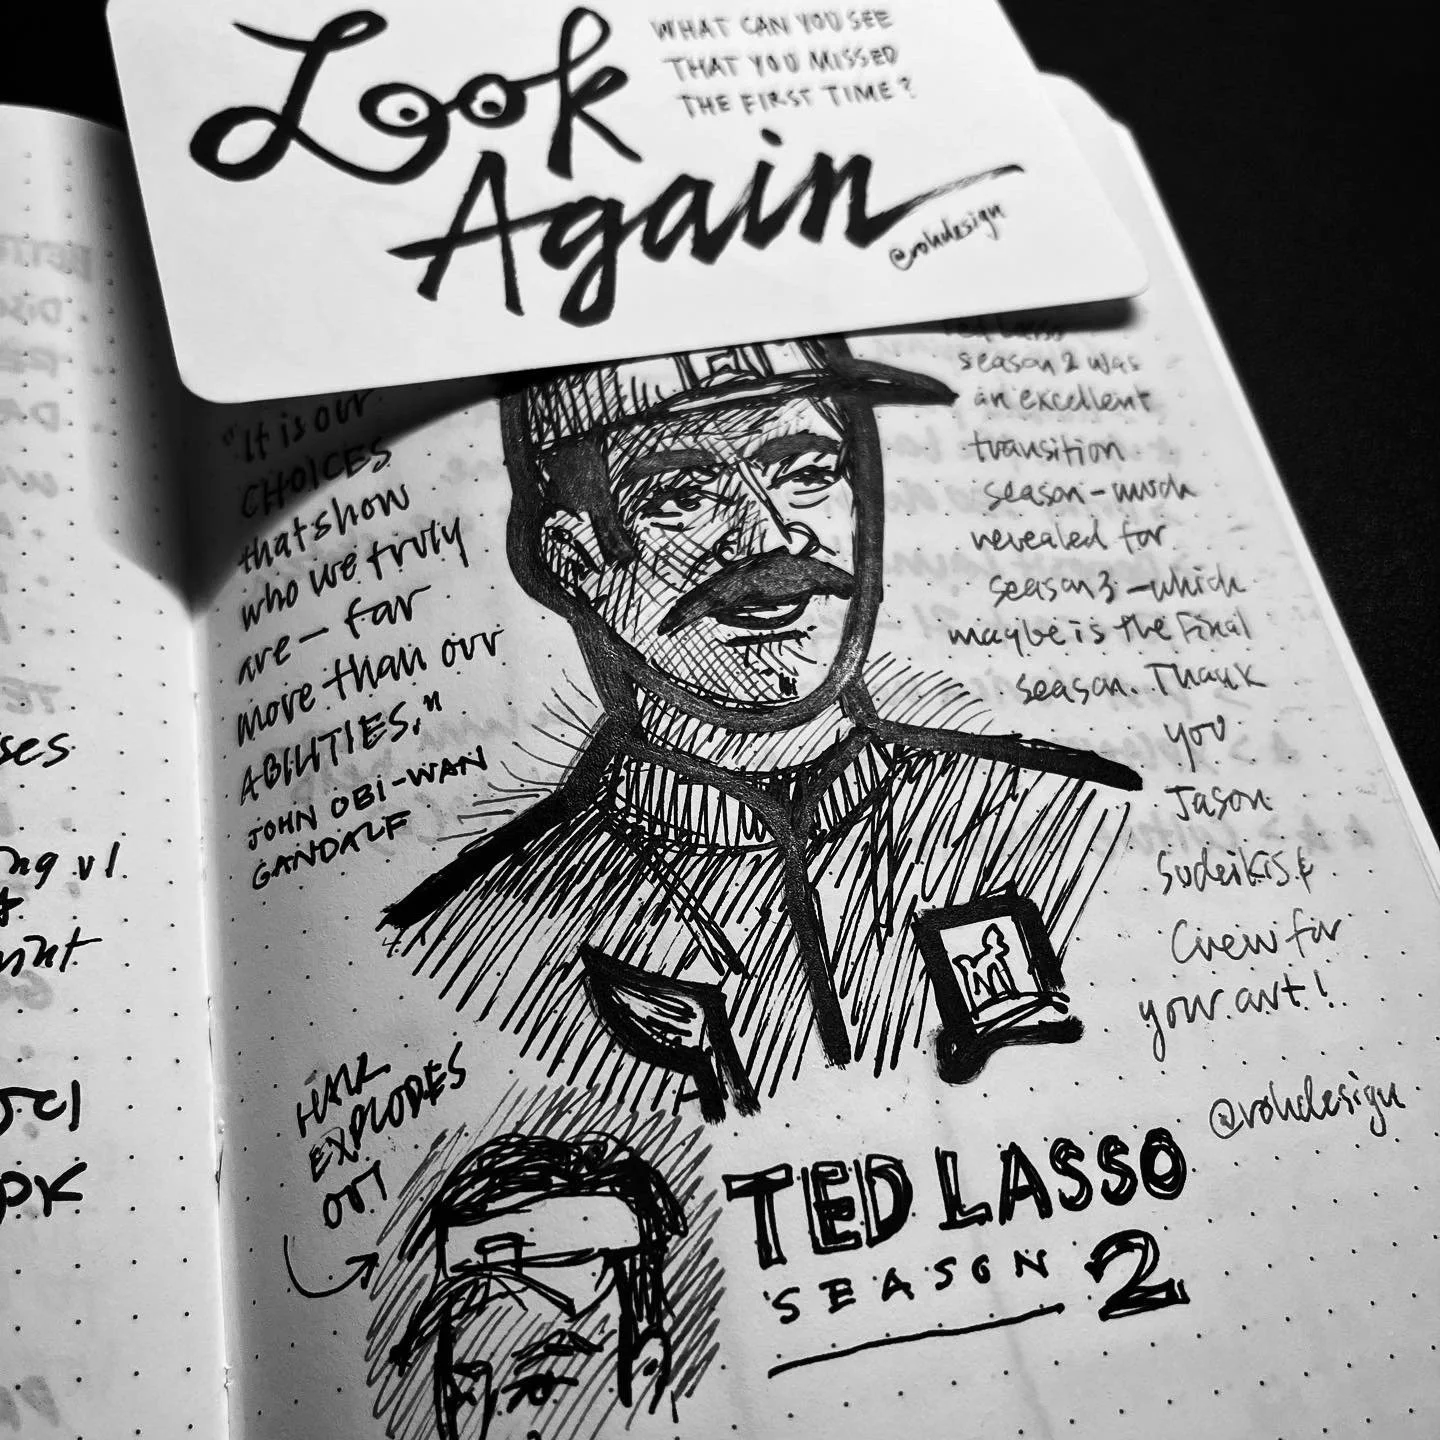 Look
Again
WHAT CAN YOU SEE
THAT YOU MISSED
THE FIRST TIME?
@rohdesign
"It is our
CHOICES
that show
who we truly
are — far
more than our
ABILITIES."
JOHN OBI-WAN
GANDALF
Ted Lasso
season 2 was
an excellent
transition
season - much
revealed for
season 3 - which
maybe is the final
season. Thank
you
Jason
Sudeikis &
Crew for
your art!
@rohdesign
HAIR
EXPLODES
OUT
TED LASSO
SEASON 2
ses
ng v1